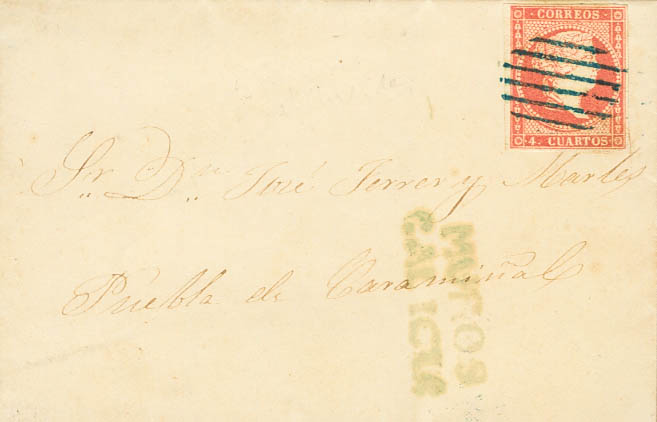 CORREOS
4. CUARTOS
Sr. Dn. José Ferrer y Martés
Puebla de Caramiñal
MUTOS
GALICIA